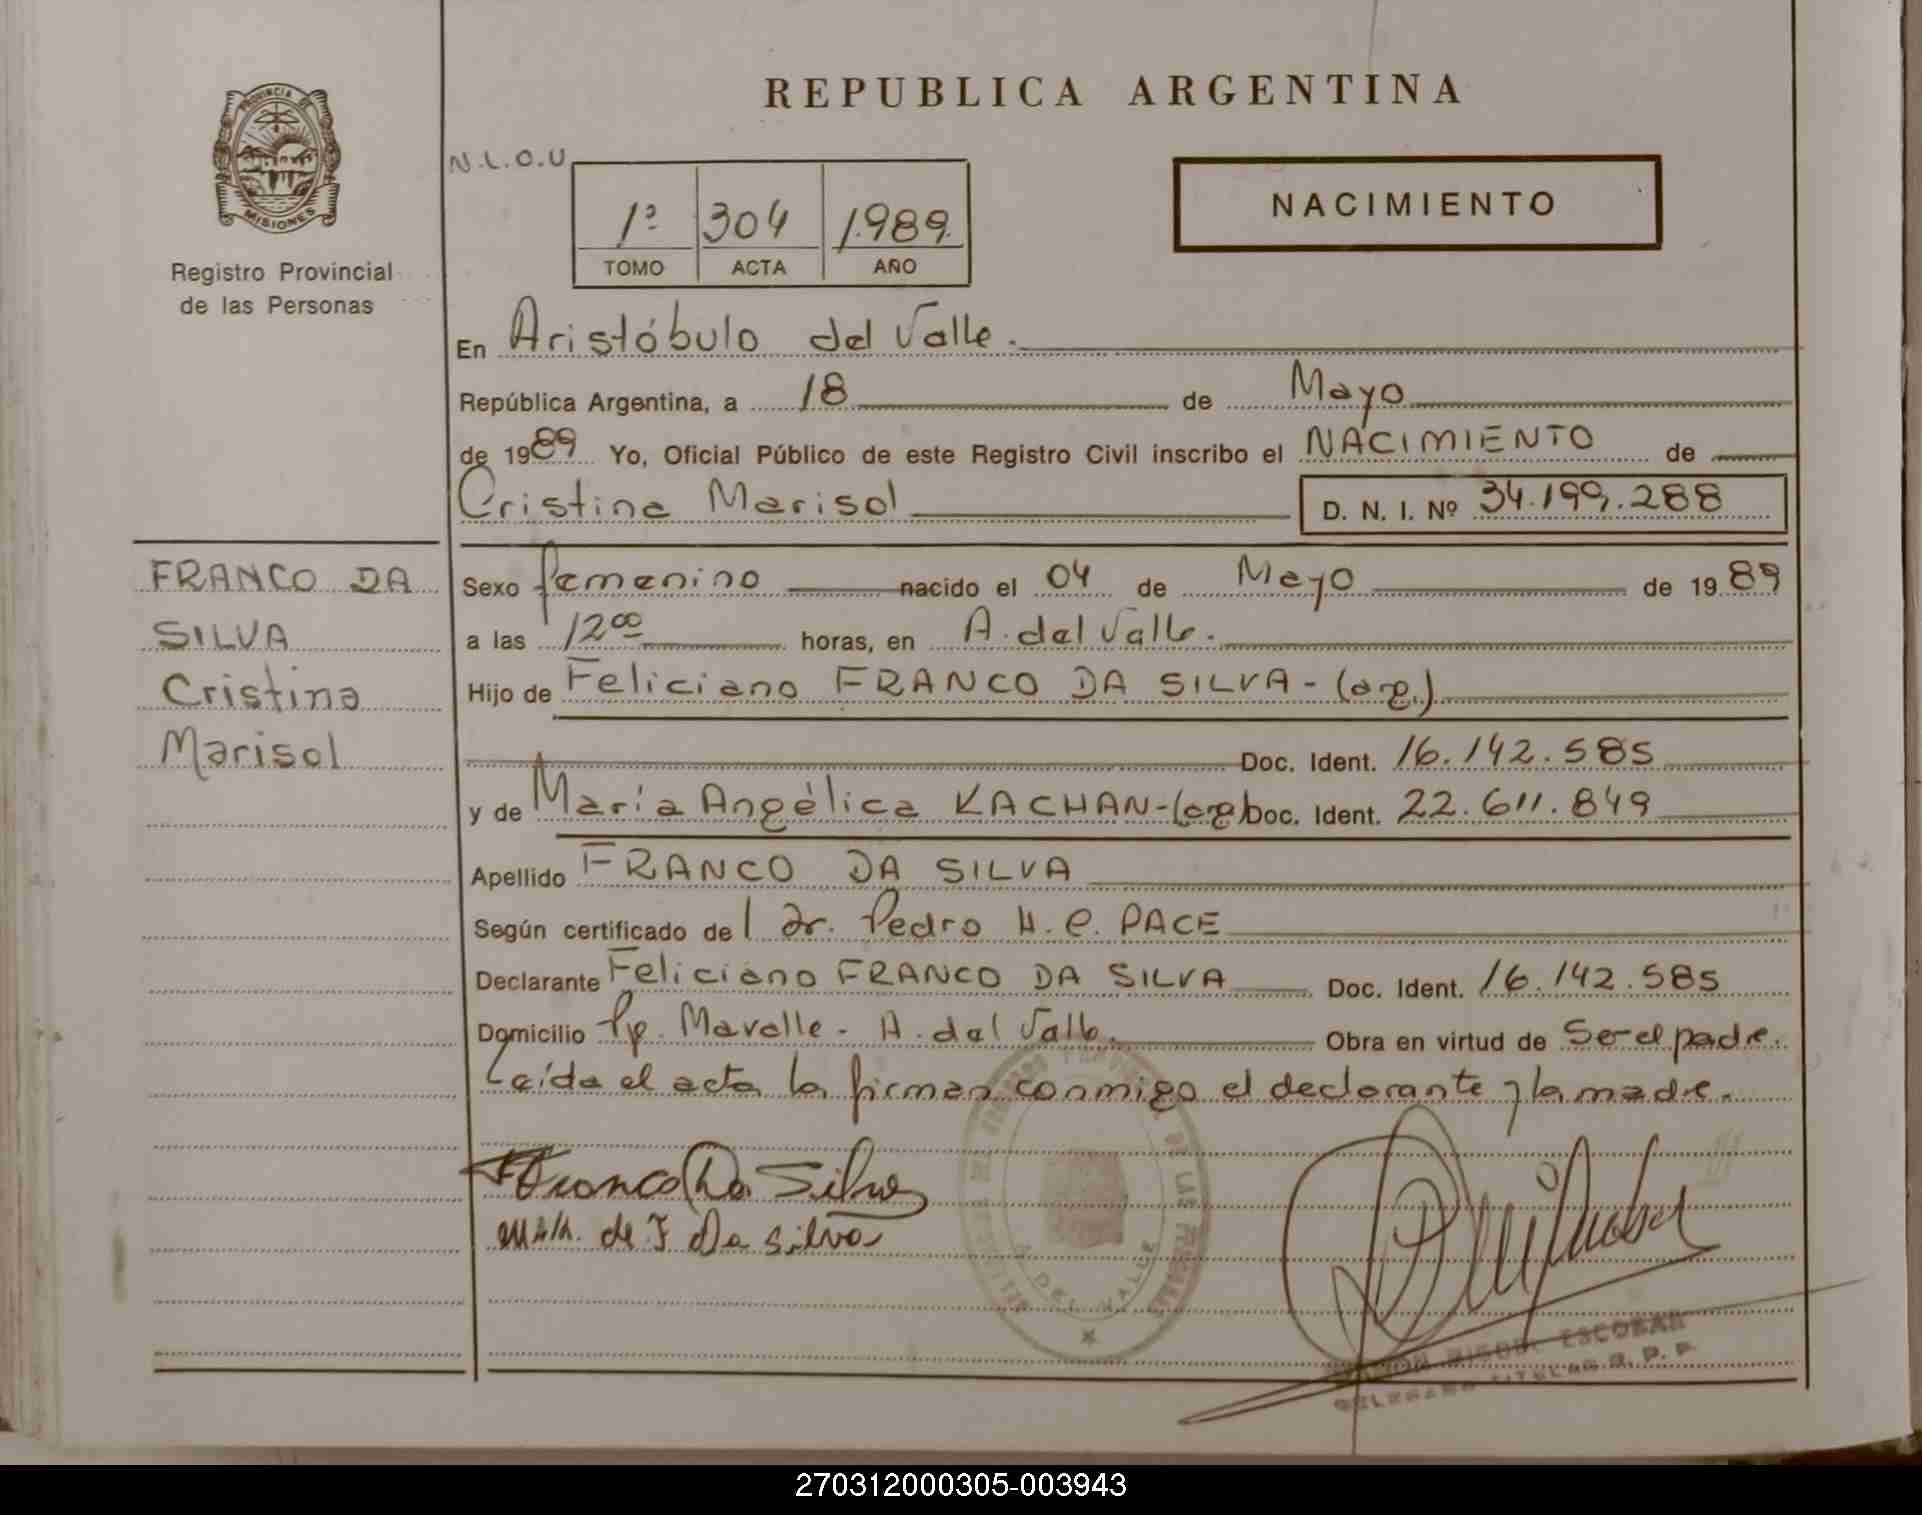 PROVINCIA DE
MISIONES
Registro Provincial
de las Personas
REPUBLICA ARGENTINA
N.L.O.U
1º 304 1.989.
TOMO ACTA AÑO
NACIMIENTO
En Aristóbulo del Valle.
República Argentina, a 18 de Mayo
de 1989 Yo, Oficial Público de este Registro Civil inscribo el NACIMIENTO de
Cristina Marisol D. N. I. Nº 34.199.288
FRANCO DA
SILVA
Cristina
Marisol
Sexo femenino nacido el 04 de Mayo de 1989
a las 12 00 horas, en A. del Valle.
Hijo de Feliciano FRANCO DA SILVA - (arg.)
Doc. Ident. 16.142.585
y de María Angélica KACHAN - (arg) Doc. Ident. 22.611.849
Apellido FRANCO DA SILVA
Según certificado del Dr. Pedro H. C. PACE
Declarante Feliciano FRANCO DA SILVA Doc. Ident. 16.142.585
Domicilio Pje. Mavalle - A. del Valle. Obra en virtud de Ser el padre.
Leída el acta la firman conmigo el declarante y la madre.
Franco Da Silva
de F Da Silva
DE LAS PERSONAS
A. DEL VALLE
ESCOBAR
TITULAR R. P. P.
270312000305-003943